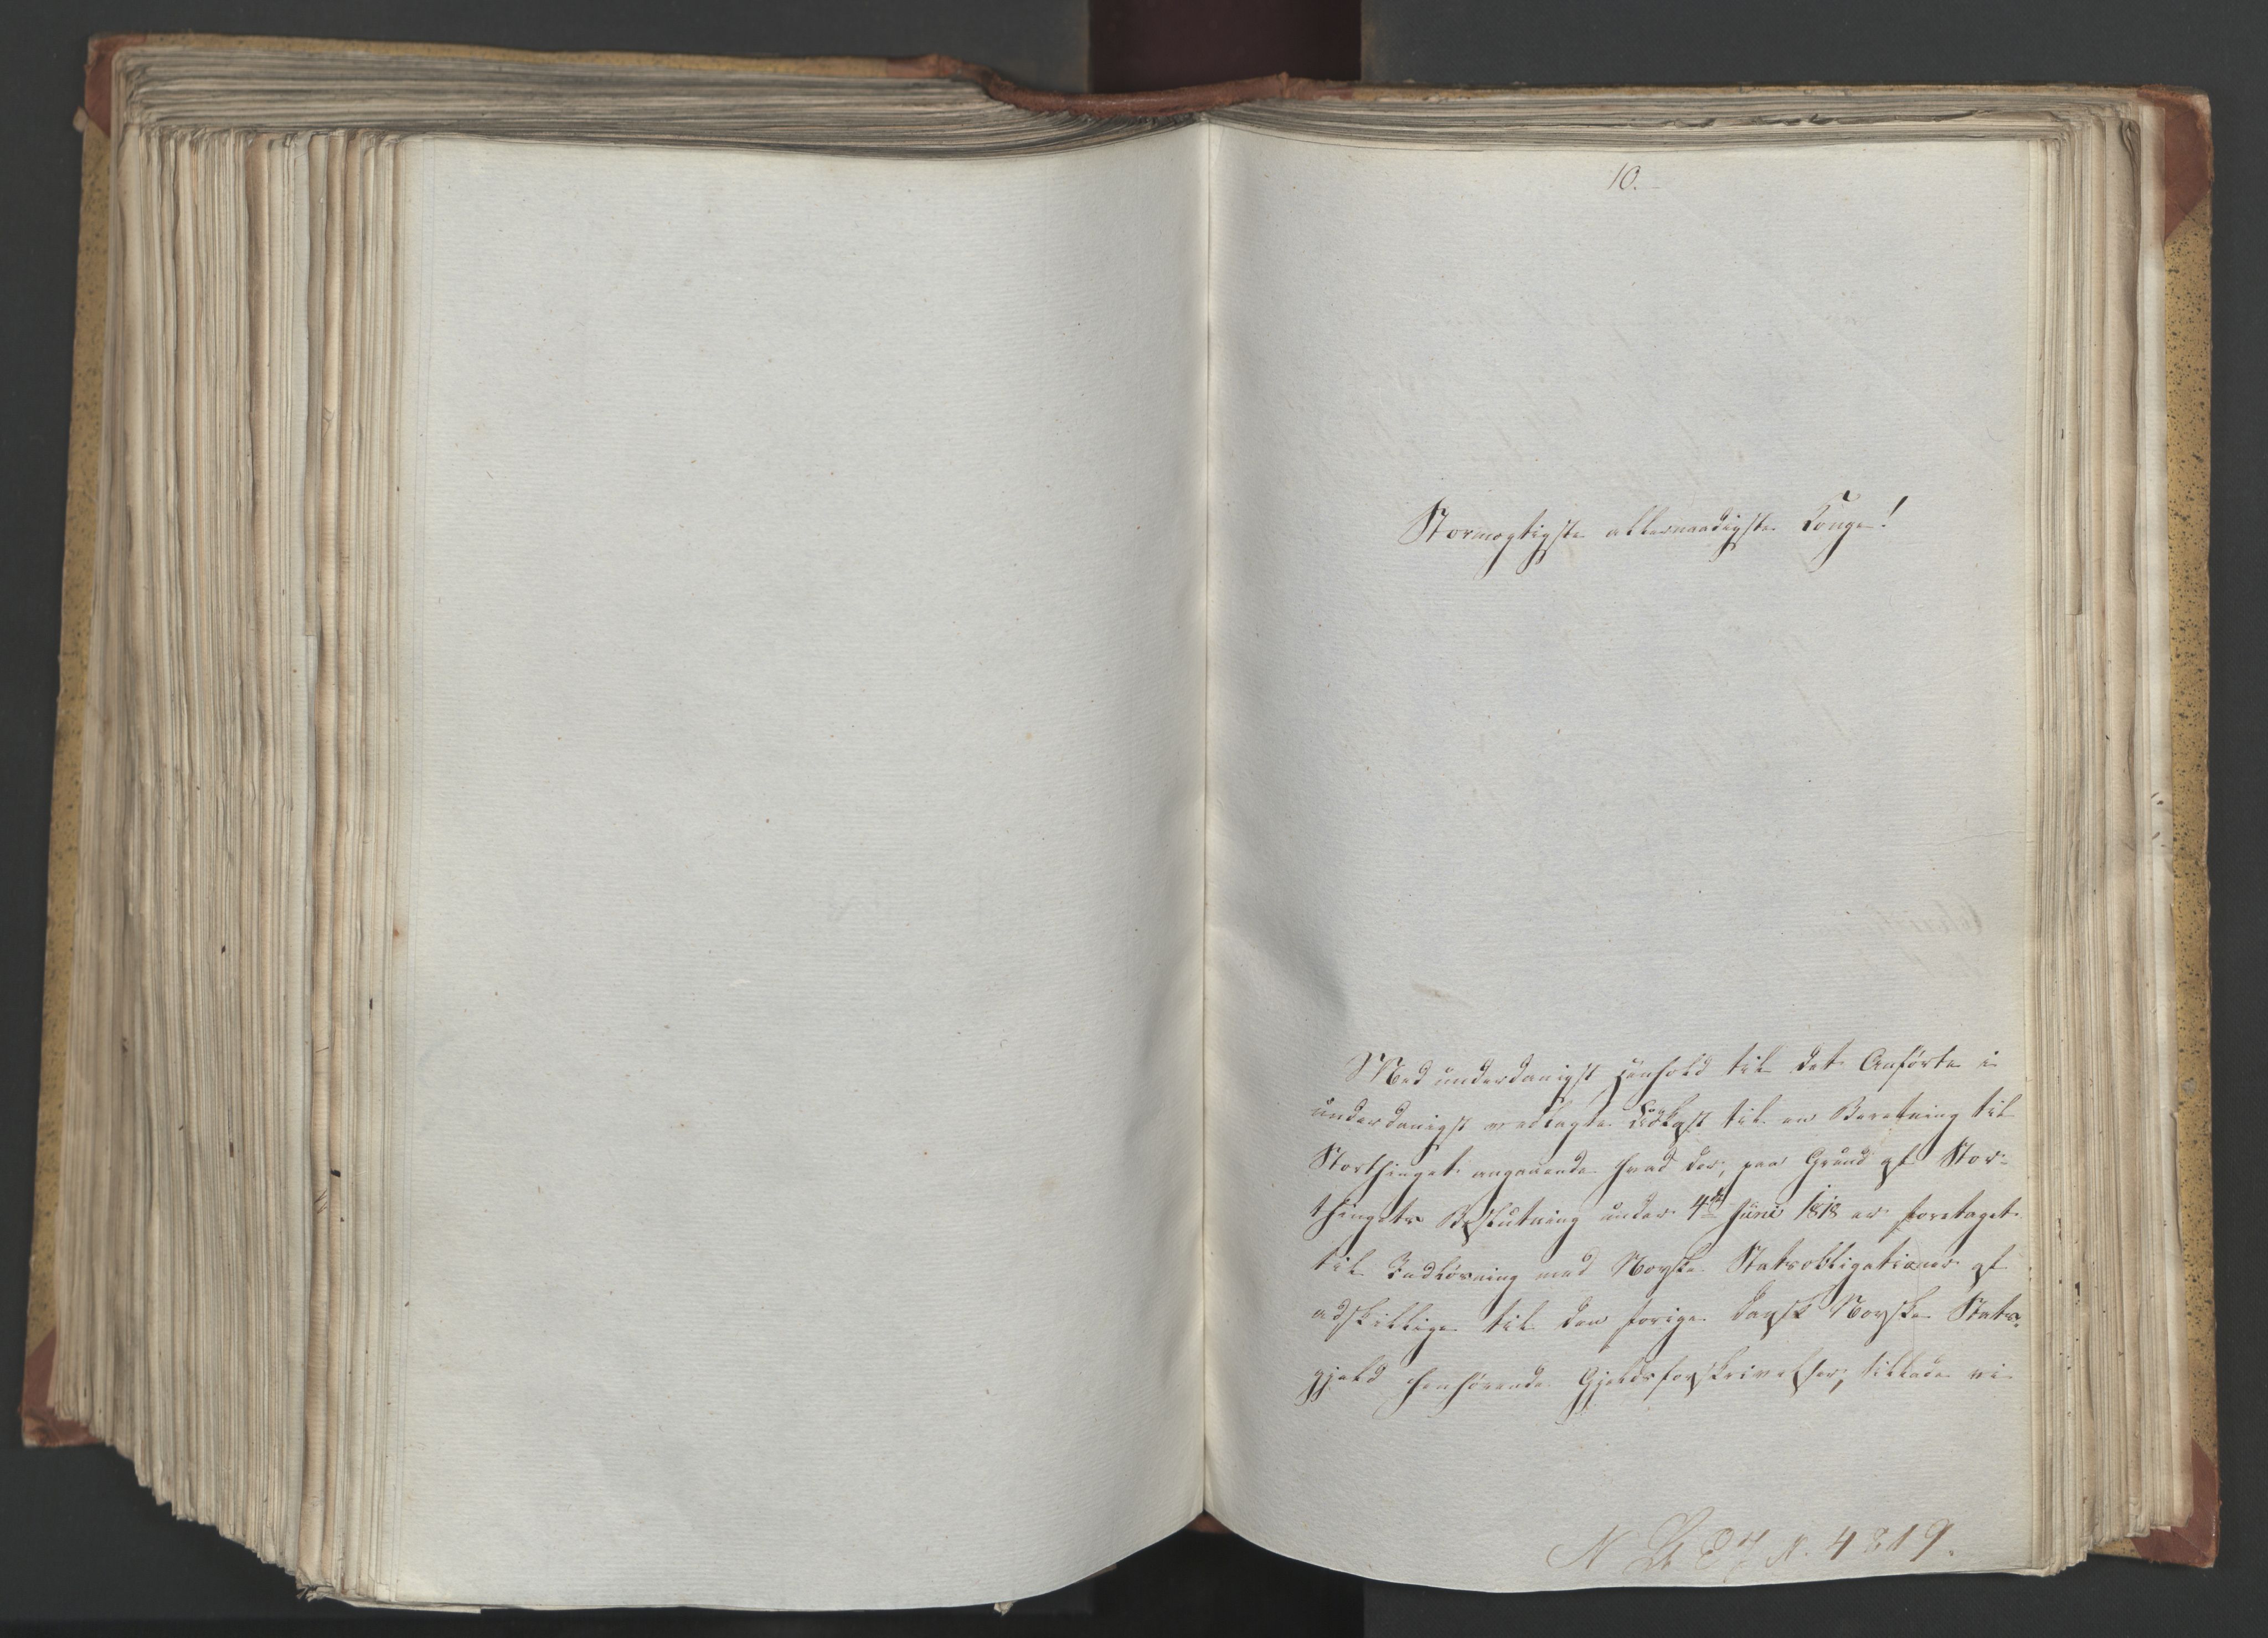 10.
Stormægtigste allernaadigste Konge!
Med underdanigst Henhold til det Anførte i
underdanigst vedlagte Udkast til en Beretning til
Storthinget angaaende hvad der, paa Grund af Stor-
thingets Beslutning under 4de Juni 1818 er foretaget
til Indløsning med Norske Statsobligationer af
adskillige til den forige Dansk Norske Stats-
gjeld henhørende Gjeldsforskrivelser, tillade vi
4819.